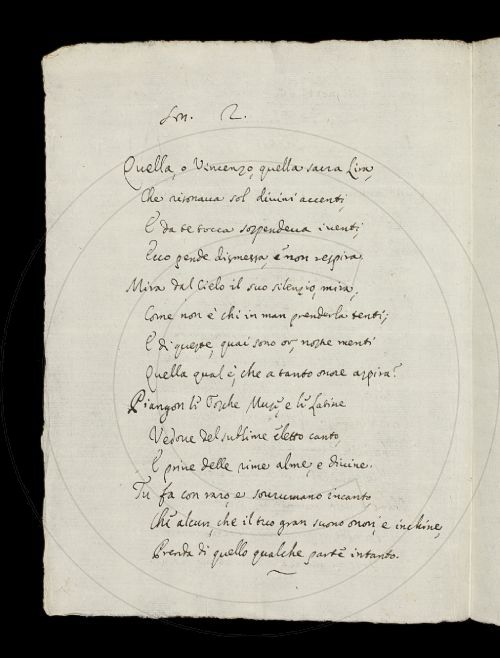 Son. 2.
Quella, o Vincenzo, quella sacra Lira,
Che risonaua sol diuini accenti,
E da te tocca sospendeua i uenti,
Ecco pende dismessa, e non respira.
Mira dal Cielo il suo silenzio, mira,
Come non è chi in man prenderla tenti;
E di queste, quai sono or, nostre menti
Quella qual è, che a tanto onore aspira?
Piangon le Tosche Muse, e le Latine
Vedoue del sublime eletto canto,
E priue delle rime alme, e diuine.
Tu fa con raro, e sourumano incanto,
Che alcun, che il tuo gran suono onori, e inchine,
Prenda di quello qualche parte intanto.